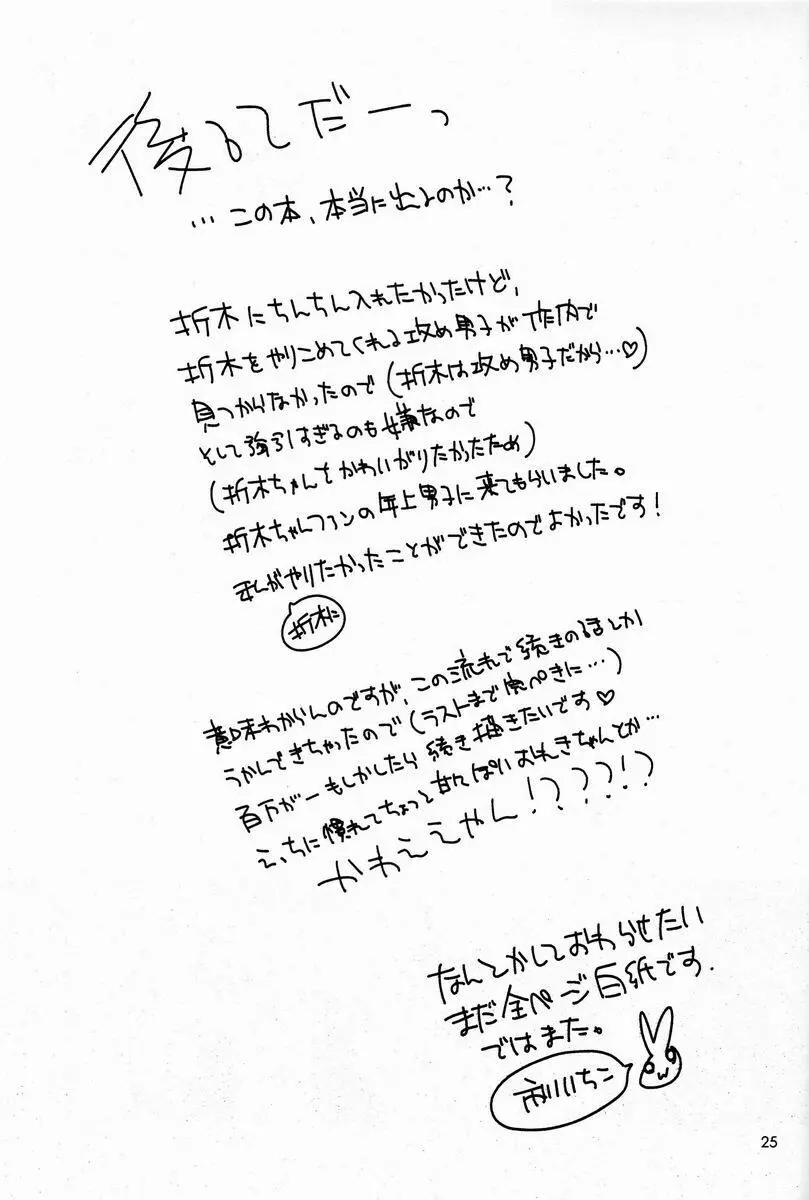 後るてだーっ
…この本、本当に出るのか…？
折木にちんちん入れたかったけど、
折木をやりこめてくれる攻め男子が作内で
見つからなかったので(折木は攻め男子だから…♡)
として強引すぎるのも嫌なので
(折木ちゃんをかわいがりたかったため)
折木ちゃんファンの年上男子に来てもらいました。
私がやりたかったことができたのでよかったです！
折木に
意味わからんのですが、この流れで続きのるまとか
うかんできちゃったので(ラストまで完ぺきに…)
百万が一もしかしたら続き描きたいです♡
えっちに慣れてちょっと甘えっぽいおれきちゃんとか…
かわええやん！？？？！？
なんとかしておわらせたい
まだ全ページ白紙です.
ではまた。
いちこ
25